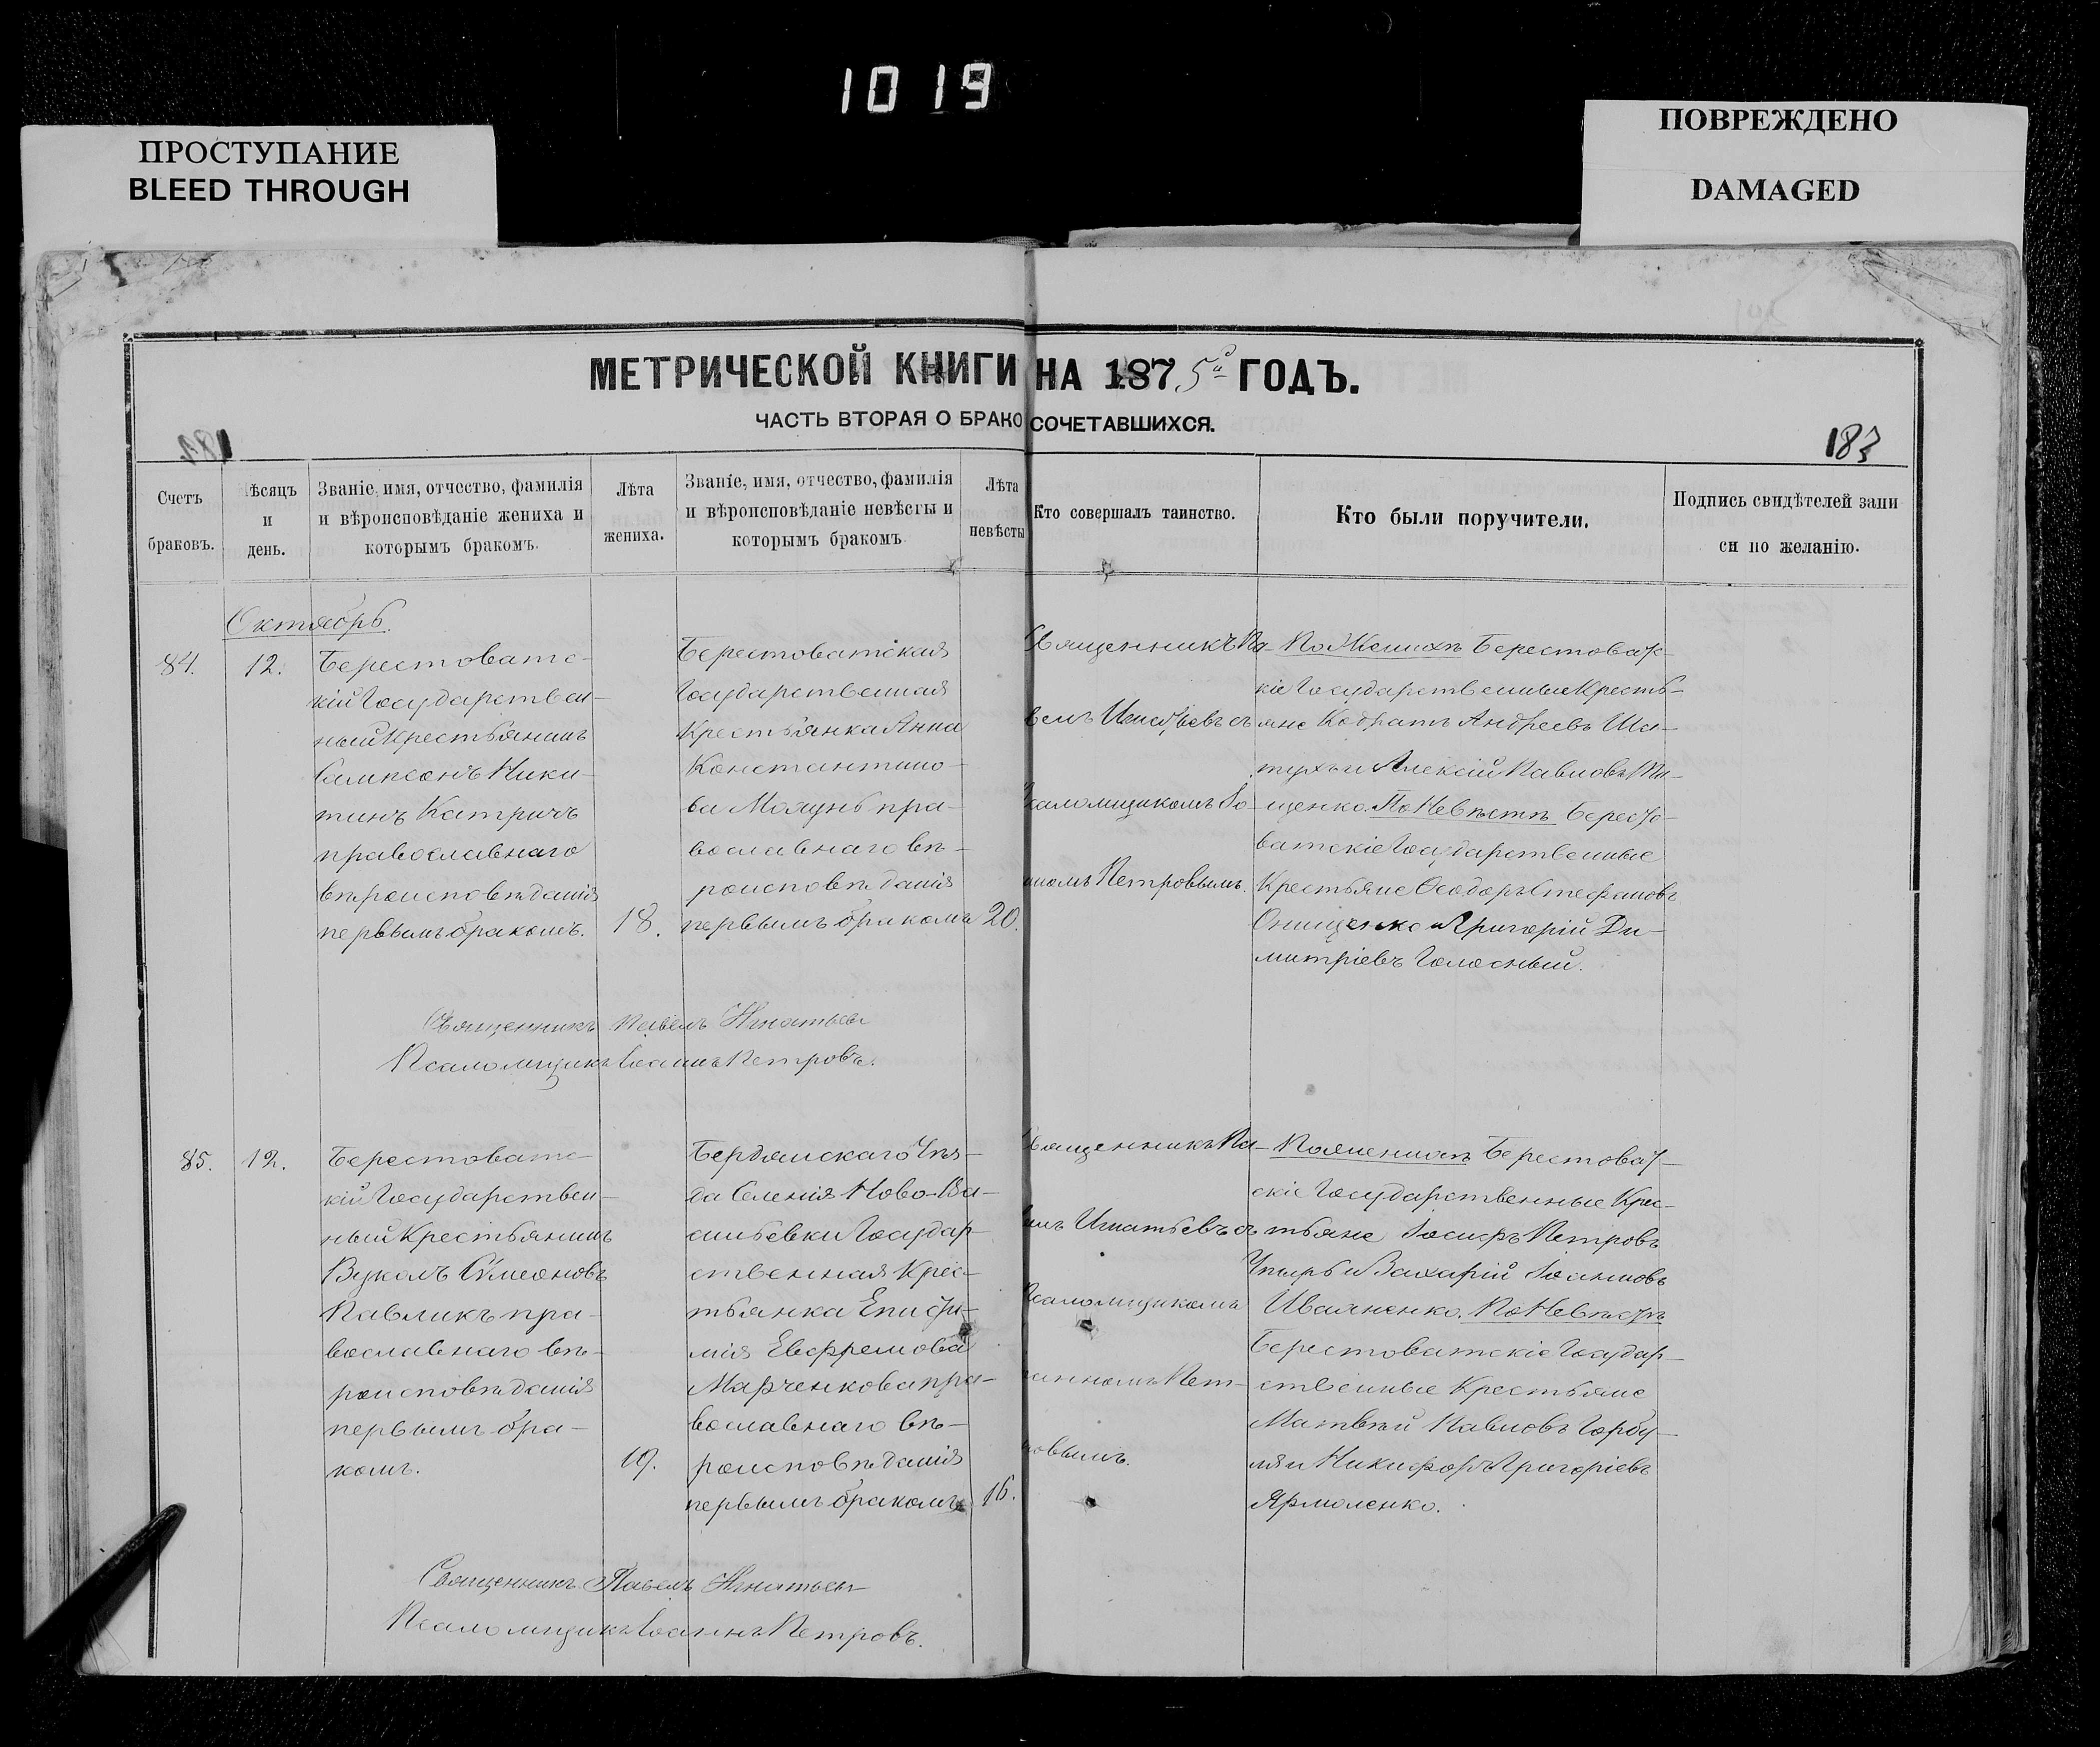 1019
ПРОСТУПАНИЕ
BLEED THROUGH
ПОВРЕЖДЕНО
DAMAGED
МЕТРИЧЕСКОЙ КНИГИ НА 1875й ГОДЪ.
ЧАСТЬ ВТОРАЯ О БРАКОСОЧЕТАВШИХСЯ.
183
Счетъ
браковъ.
Мѣсяцъ
и
день.
Званіе, имя, отчество, фамилія
и вѣроисповѣданіе жениха и
которымъ бракомъ.
Лѣта
жениха.
Званіе, имя, отчество, фамилія
и вѣроисповѣданіе невѣсты и
которымъ бракомъ
Лѣта
невѣсты
Кто совершалъ таинство.
Кто были поручители.
Подпись свидѣтелей запи
си по желанію.
Октябрь.
84.
12.
Берестоватс-
кій Государствен-
ный Крестьянинъ
Сампсонъ Ники-
тинъ Катричъ
православнаго
вѣроисповѣданія
первымъ бракомъ.
18.
Берестоватская
Государственная
Крестьянка Анна
Константино-
ва Моягунь пра-
вославнаго вѣ-
роисповѣданія
первымъ бракомъ
20.
Священникъ Па-
велъ Игнатьевъ съ
Псаломщикомъ Іо-
анномъ Петровымъ.
По Женихѣ Берестоватс-
кіе Государственные Кресть-
яне Кодратъ Андреевъ Шен-
турхъ и Алексій Павловъ Пи-
щенко. По Невѣстѣ Бересто-
ватскіе Государственные
Крестьяне Ѳеодоръ Стефановъ
Онищенко и Григорій Ди-
митріевъ Голосный.
Священникъ Павелъ Игнатьевъ
Псаломщикъ Іоаннъ Петровъ.
85.
12.
Берестоватс-
кій Государствен-
ный Крестьянинъ
Вуколъ Сѵмеоновъ
Павликъ пра-
вославнаго вѣ-
роисповѣданія
первымъ бра-
комъ.
19.
Бердянскаго Уѣз-
да Селенія Ново-Ва-
сильевки Государ-
ственная Крес-
тьянка Епифи-
мія Евфремова
Марченкова пра-
вославнаго вѣ-
роисповѣданія
первымъ бракомъ
16.
Священникъ Па-
велъ Игнатьевъ съ
Псаломщикомъ
Іоанномъ Пет-
ровымъ.
По Женихѣ Берестоват-
скіе Государственные Крес-
тьяне Іосифъ Петровъ
Упырь и Захарій Іоанновъ
Иваненко. По Невѣстѣ
Берестоватскіе Государ-
ственные Крестьяне
Матвѣй Павловъ Горбу-
ля и Никифоръ Григоріевъ
Ярмоленко.
Священникъ Павелъ Игнатьевъ
Псаломщикъ Іоаннъ Петровъ.